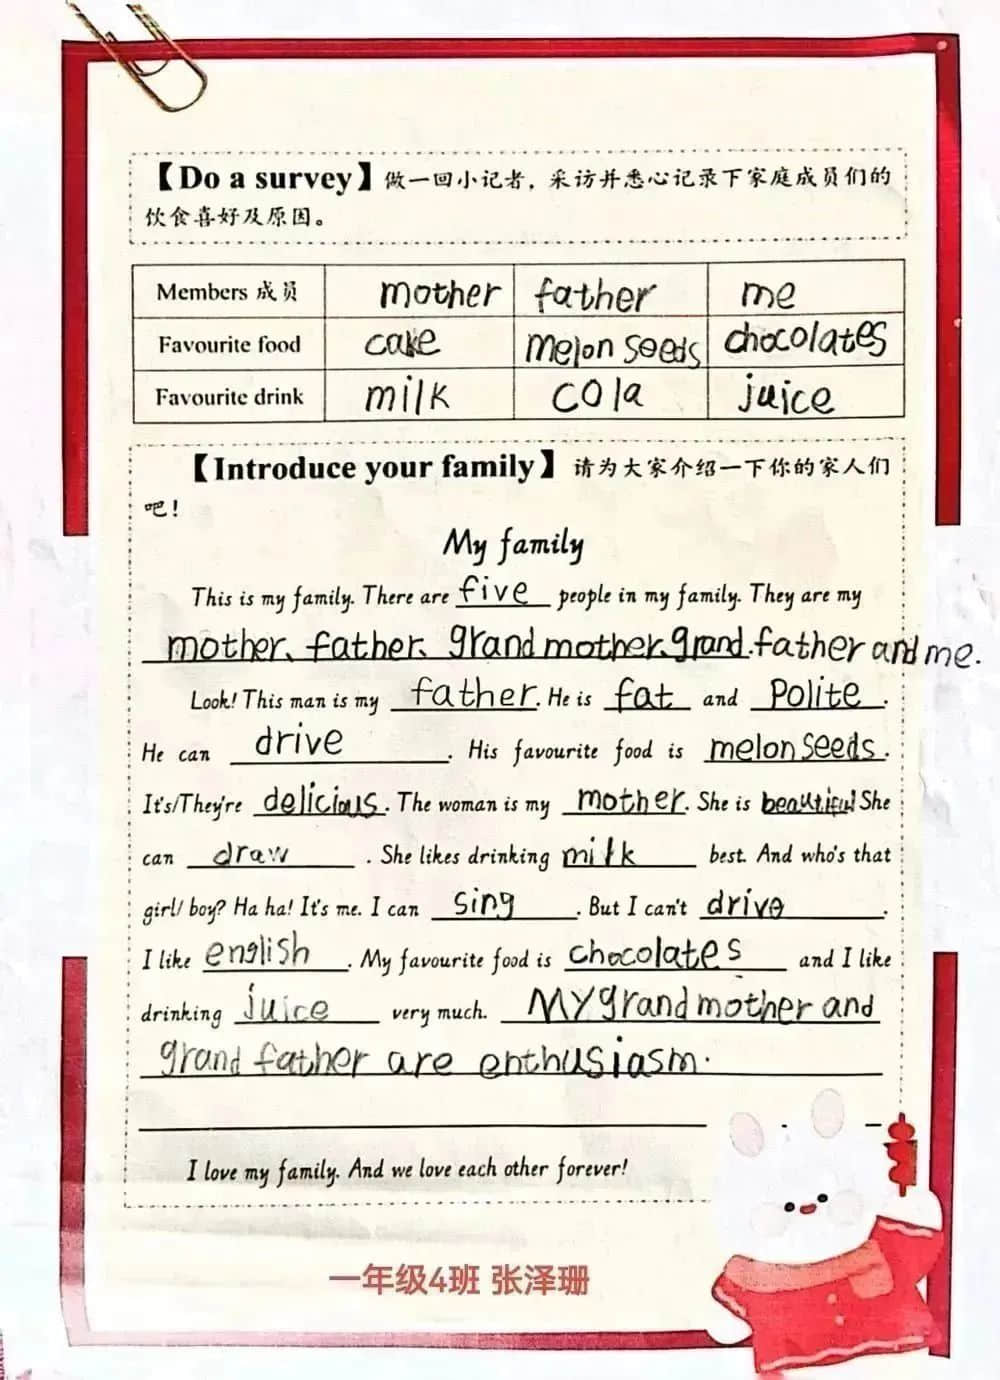 【Do a survey】做一回小记者，采访并悉心记录下家庭成员们的
饮食喜好及原因。
Members 成员 mother father me
Favourite food cake melon seeds chocolates
Favourite drink milk cola juice
【Introduce your family】请为大家介绍一下你的家人们
吧！
My family
This is my family. There are five people in my family. They are my
mother、father、grandmother、grand father and me.
Look! This man is my father. He is fat and Polite.
He can drive. His favourite food is melon seeds.
It's/They're delicious. The woman is my mother. She is beautiful She
can draw. She likes drinking milk best. And who's that
girl/ boy? Ha ha! It's me. I can sing. But I can't drive.
I like english. My favourite food is chocolates and I like
drinking juice very much. MY grand mother and
grand father are enthusiasm.
I love my family. And we love each other forever!
一年级4班 张泽珊